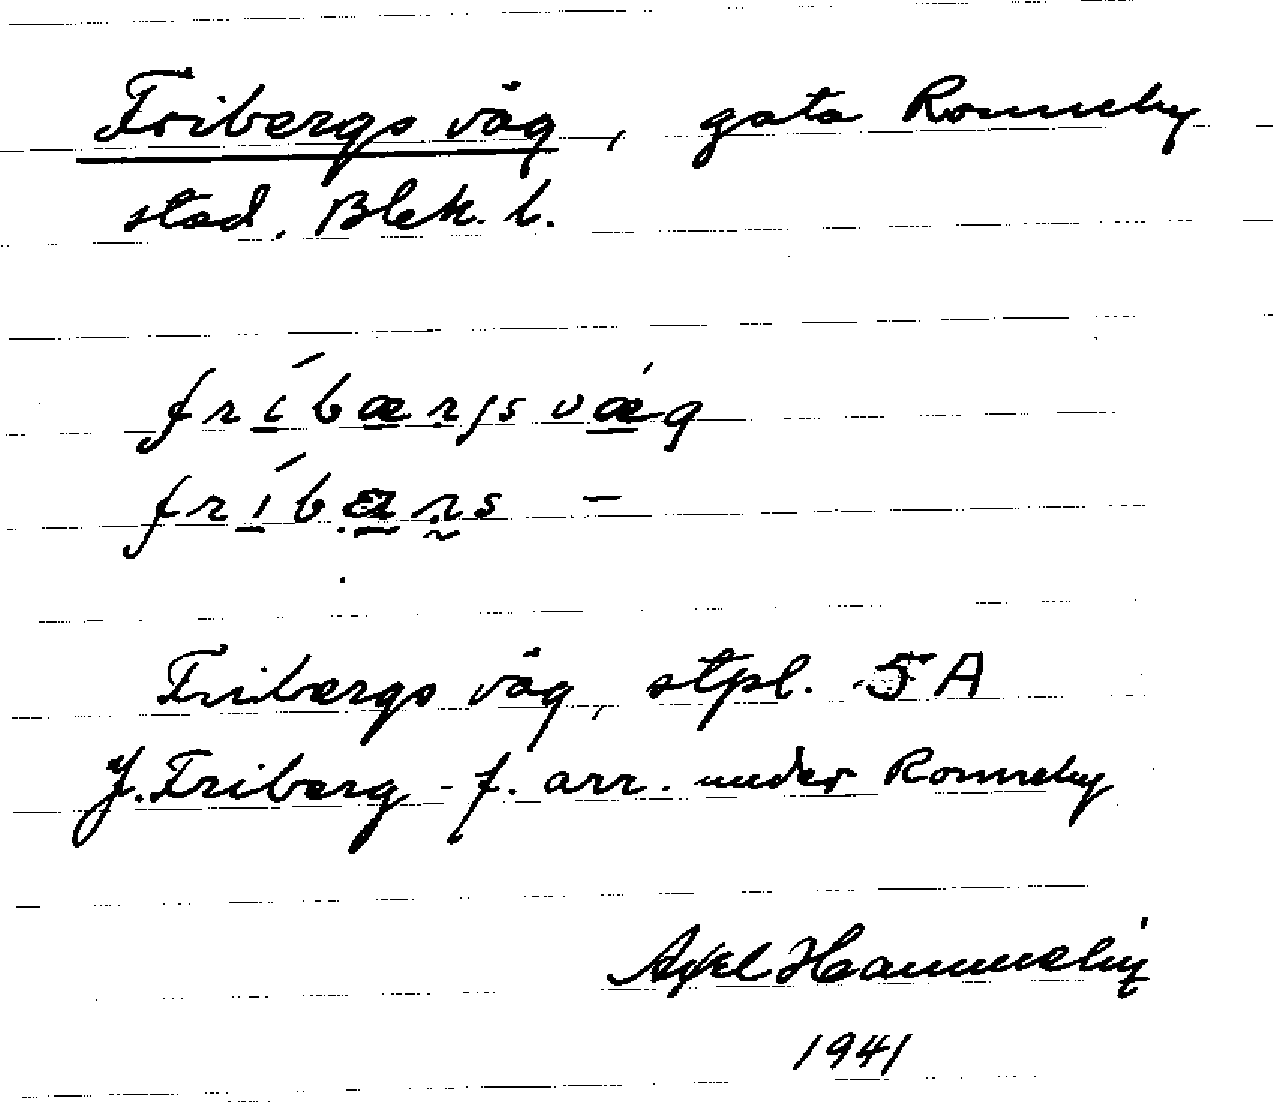 Fribergs väg, gata Ronneby
stad, Blek. l.
fríbærjs vǽg
fríbærs –
Fribergs väg, stpl. 5A
J. Friberg - f. arr. under Ronneby
Axel
1941